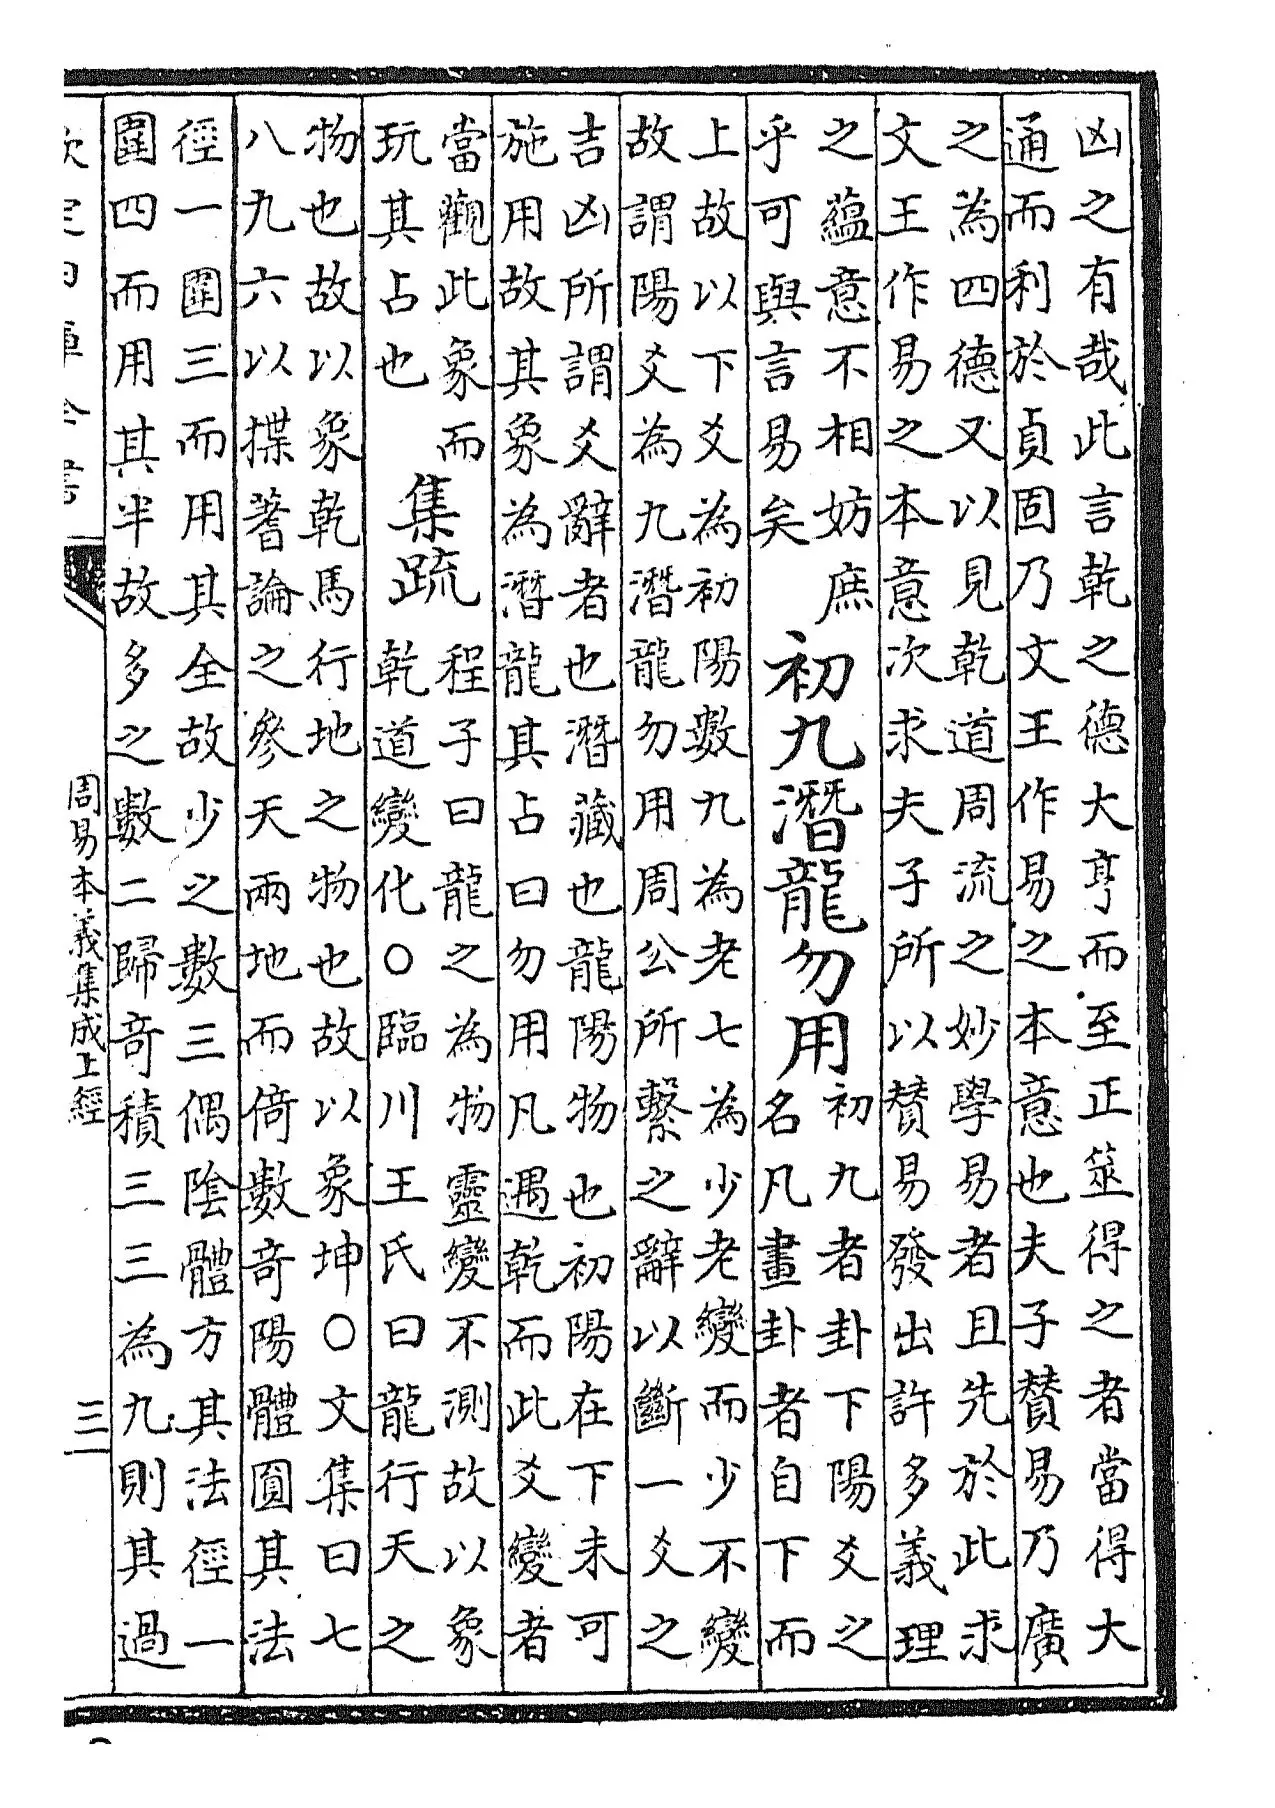 凶之有哉此言乾之德大亨而至正筮得之者當得大
通而利於貞固乃文王作易之本意也夫子贊易乃廣
之為四德又以見乾道周流之妙學易者且先於此求
文王作易之本意次求夫子所以賛易發出許多義理
之蘊意不相妨庶
乎可與言易矣
初九潛龍勿用
初九者卦下陽爻之
名凡畫卦者自下而
上故以下爻為初陽數九為老七為少老變而少不變
故謂陽爻為九潛龍勿用周公所繫之辭以斷一爻之
吉凶所謂爻辭者也潛藏也龍陽物也初陽在下未可
施用故其象為潛龍其占曰勿用凡遇乾而此爻變者
當觀此象而
玩其占也
集疏
程子曰龍之為物靈變不測故以象
乾道變化○臨川王氏曰龍行天之
物也故以象乾馬行地之物也故以象坤○文集曰七
八九六以揲蓍論之參天兩地而倚數竒陽體圓其法
徑一圍三而用其全故少之數三偶陰體方其法徑一
圍四而用其半故多之數二歸竒積三三為九則其過
欽定四庫全書
周易本義集成上經
三